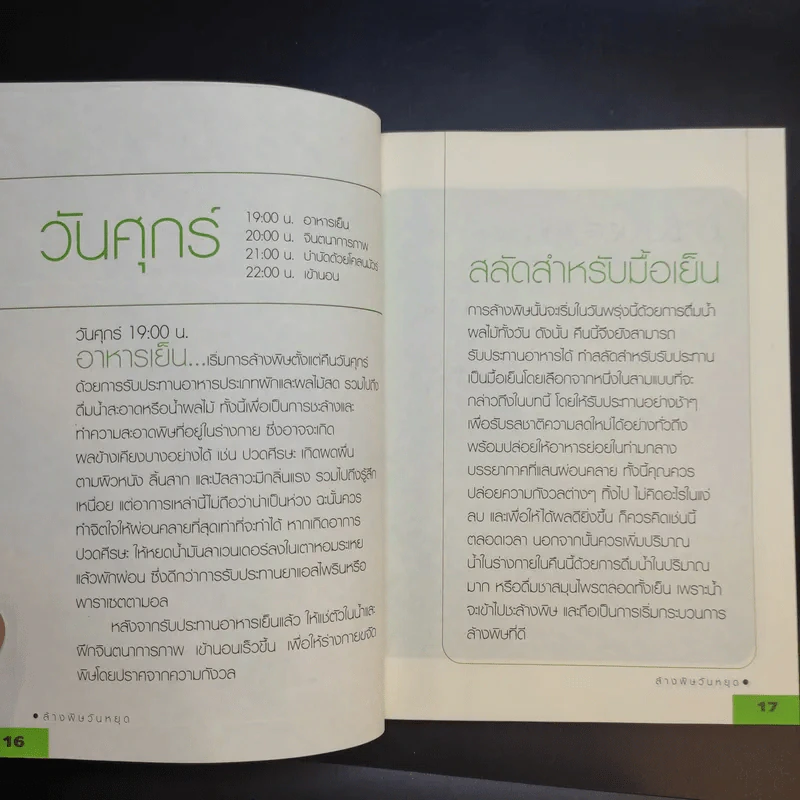 วันศุกร์
19:00 น. อาหารเย็น
20:00 น. จินตนาการภาพ
21:00 น. บำบัดด้วยโคลนมัวร์
22:00 น. เข้านอน
วันศุกร์ 19:00 น.
อาหารเย็น...เริ่มการล้างพิษตั้งแต่คืนวันศุกร์
ด้วยการรับประทานอาหารประเภทผักและผลไม้สด รวมไปถึง
ดื่มน้ำสะอาดหรือน้ำผลไม้ ทั้งนี้เพื่อเป็นการชะล้างและ
ทำความสะอาดพิษที่อยู่ในร่างกาย ซึ่งอาจจะเกิด
ผลข้างเคียงบางอย่างได้ เช่น ปวดศีรษะ เกิดผดผื่น
ตามผิวหนัง ลิ้นสาก และปัสสาวะมีกลิ่นแรง รวมไปถึงรู้สึก
เหนื่อย แต่อาการเหล่านี้ไม่ถือว่าน่าเป็นห่วง ฉะนั้นควร
ทำจิตใจให้ผ่อนคลายที่สุดเท่าที่จะทำได้ หากเกิดอาการ
ปวดศีรษะ ให้หยดน้ำมันลาเวนเดอร์ลงในเตาหอมระเหย
แล้วพักผ่อน ซึ่งดีกว่าการรับประทานยาแอสไพรินหรือ
พาราเซตตามอล
หลังจากรับประทานอาหารเย็นแล้ว ให้แช่ตัวในน้ำและ
ฝึกจินตนาการภาพ เข้านอนเร็วขึ้น เพื่อให้ร่างกายขจัด
พิษโดยปราศจากความกังวล
ล้างพิษวันหยุด
16
สลัดสำหรับมื้อเย็น
การล้างพิษนั้นจะเริ่มในวันพรุ่งนี้ด้วยการดื่มน้ำ
ผลไม้ทั้งวัน ดังนั้น คืนนี้จึงยังสามารถ
รับประทานอาหารได้ ทำสลัดสำหรับรับประทาน
เป็นมื้อเย็นโดยเลือกจากหนึ่งในสามแบบที่จะ
กล่าวถึงในบทนี้ โดยให้รับประทานอย่างช้าๆ
เพื่อรับรสชาติความสดใหม่ได้อย่างทั่วถึง
พร้อมปล่อยให้อาหารย่อยในท่ามกลาง
บรรยากาศที่แสนผ่อนคลาย ทั้งนี้คุณควร
ปล่อยความกังวลต่างๆ ทิ้งไป ไม่คิดอะไรในแง่
ลบ และเพื่อให้ได้ผลดียิ่งขึ้น ก็ควรคิดเช่นนี้
ตลอดเวลา นอกจากนั้นควรเพิ่มปริมาณ
น้ำในร่างกายในคืนนี้ด้วยการดื่มน้ำในปริมาณ
มาก หรือดื่มชาสมุนไพรตลอดทั้งเย็น เพราะน้ำ
จะเข้าไปชะล้างพิษ และถือเป็นการเริ่มกระบวนการ
ล้างพิษที่ดี
ล้างพิษวันหยุด
17